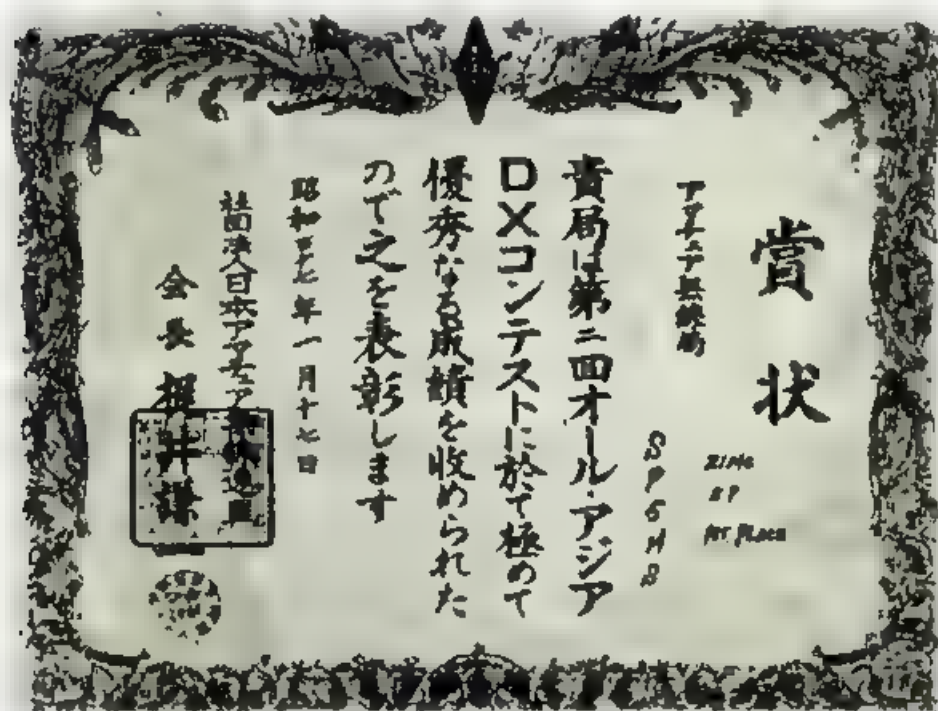 賞状
21MC
SP
1ST PLACE
アマチュア無線局
SP6HB
貴局は第二回オール・アジア
DXコンテストに於て極めて
優秀なる成績を収められた
ので之を表彰します
昭和三七年一月十七日
社団法人日本アマチュア無線連盟
会長 梶井謙一